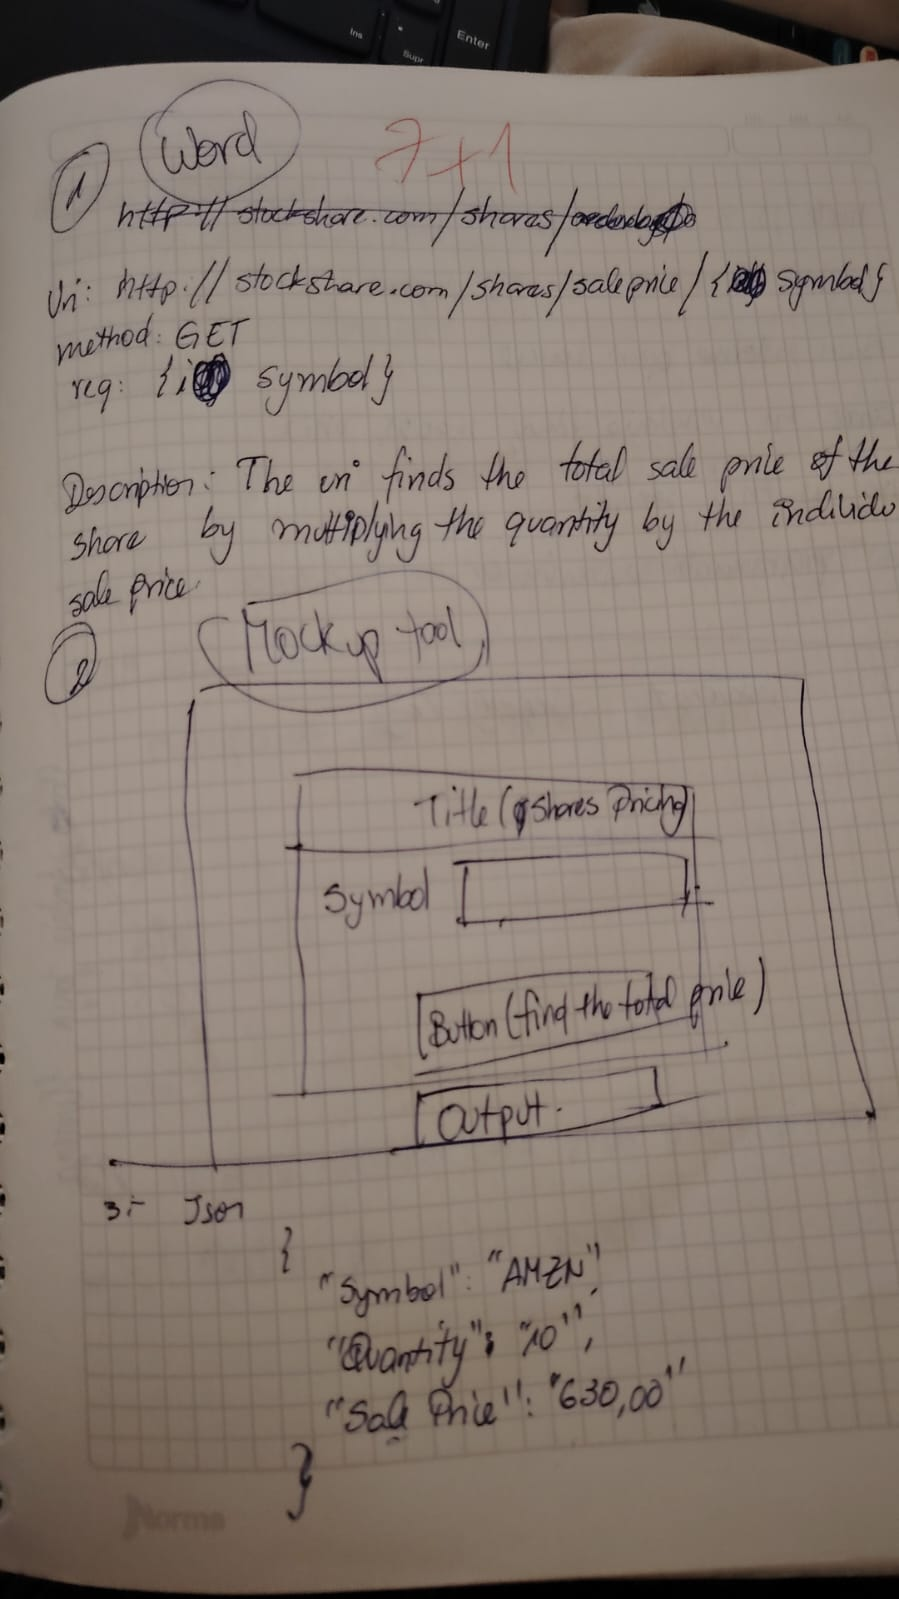 Ins
Supr
Enter
Word
7+1
1
http://stockshare.com/shares/
Uri: http://stockshare.com/shares/saleprice/{ symbol}
method: GET
req: {i symbol}
Description: The uri finds the total sale price of the
share by multiplying the quantity by the individu
sale price.
2
Mockup tool
Title (shares pricing)
Symbol
Button (find the total price)
Output.
3.- Json
{
"Symbol": "AMZN",
"Quantity": "10",
"Sale Price": "630,00"
}
Norma